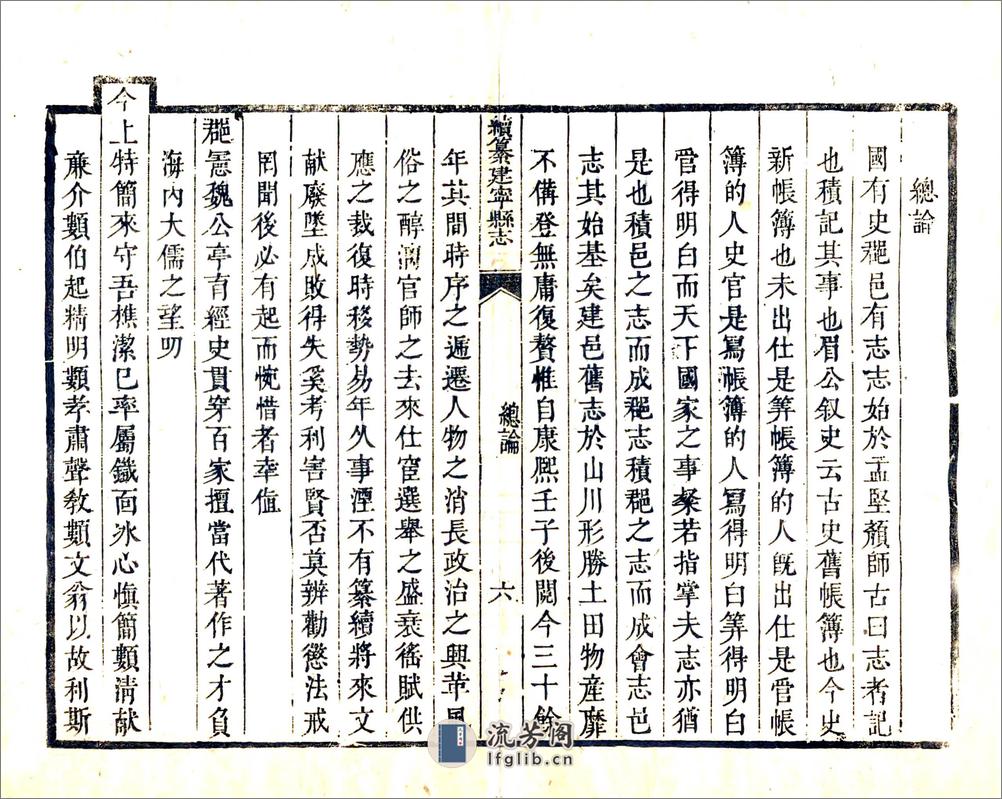 總論
國有史郡邑有志志始於孟堅顏師古曰志者記
也積記其事也眉公叙史云古史舊帳簿也今史
新帳簿也未出仕是筭帳簿的人旣出仕是管帳
簿的人史官是寫帳簿的人寫得明白筭得明白
管得明白而天下國家之事粲若指掌夫志亦猶
是也積邑之志而成郡志積郡之志而成會志邑
志其始基矣建邑舊志於山川形勝土田物産靡
不備登無庸復贅惟自康熙壬子後閱今三十餘
續纂建寧縣志
總論
六
年其間時序之遞遷人物之消長政治之興革風
俗之醇澆官師之去來仕宦選舉之盛衰徭賦供
應之裁復時移勢易年久事湮不有纂續將來文
献廢墜成敗得失奚考利害賢否莫辨勸懲法戒
罔聞後必有起而惋惜者幸值
郡憲魏公亭育經史貫穿百家擅當代著作之才負
海內大儒之望叨
今上特簡來守吾樵潔已率屬鐵面冰心愼簡類清献
亷介類伯起精明類孝肅聲敎類文翁以故利斯
流芳阁
lfglib.cn